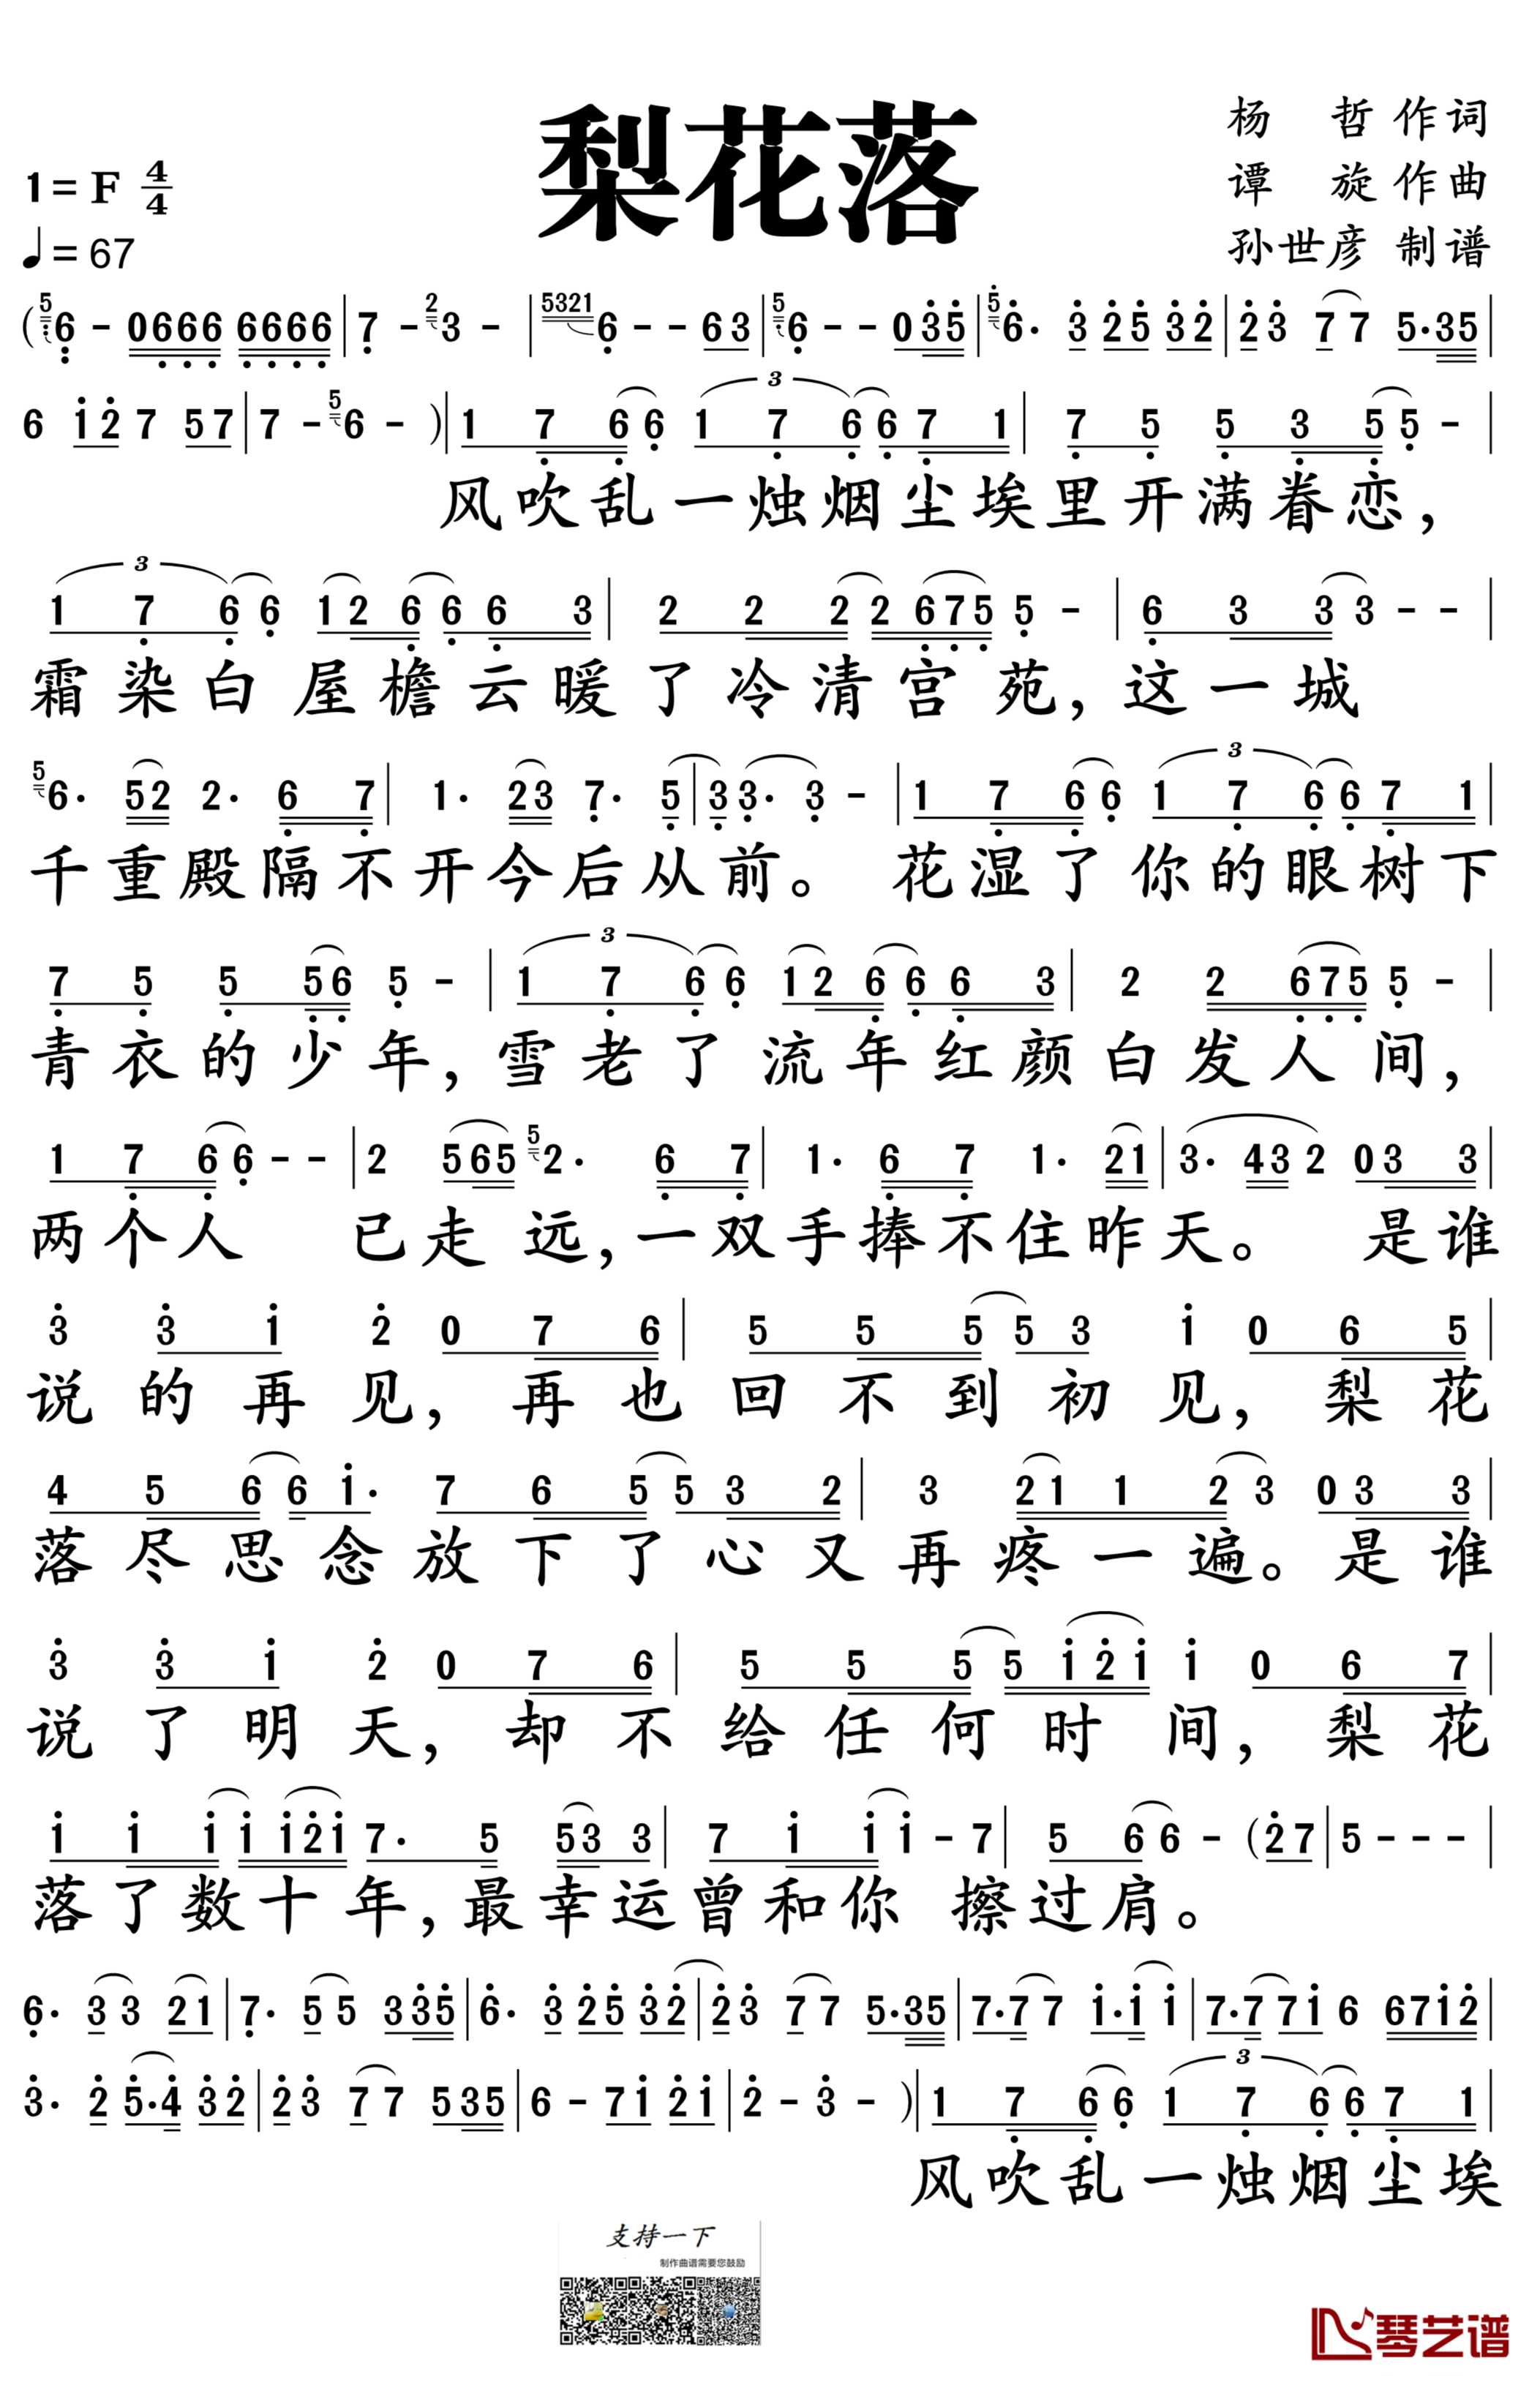 梨花落
杨 哲 作词
谭 旋 作曲
孙世彦 制谱
1=F 4/4
♩=67
( 5 6 - 0 6 6 6 6 6 6 6 | 7 - 2 3 - | 5321 6 - - 6 3 | 5 6 - - 0 3 5 | 5 6· 3 2 5 3 2 | 2 3 7 7 5·3 5 |
6 1 2 7 5 7 | 7 - 5 6 - ) | 1 7 6 6 3 1 7 6 6 7 1 | 7 5 5 3 5 5 - |
风吹乱一烛烟尘埃里开满眷恋，
3 1 7 6 6 1 2 6 6 6 3 | 2 2 2 2 6 7 5 5 - | 6 3 3 3 - - |
霜染白屋檐云暖了冷清宫苑，这一城
5 6· 5 2 2· 6 7 | 1· 2 3 7· 5 | 3 3· 3 - | 1 7 6 6 3 1 7 6 6 7 1 |
千重殿隔不开今后从前。 花湿了你的眼树下
7 5 5 5 6 5 - | 3 1 7 6 6 1 2 6 6 6 3 | 2 2 6 7 5 5 - |
青衣的少年，雪老了流年红颜白发人间，
1 7 6 6 - - | 2 5 6 5 5 2· 6 7 | 1· 6 7 1· 2 1 | 3· 4 3 2 0 3 3 |
两个人 已走远，一双手捧不住昨天。 是谁
3 3 1 2 0 7 6 | 5 5 5 5 3 1 0 6 5 |
说的再见，再也回不到初见，梨花
4 5 6 6 1· 7 6 5 5 3 2 | 3 2 1 1 2 3 0 3 3 |
落尽思念放下了心又再疼一遍。是谁
3 3 1 2 0 7 6 | 5 5 5 5 1 2 1 1 0 6 7 |
说了明天，却不给任何时间，梨花
1 1 1 1 1 2 1 7· 5 5 3 3 | 7 1 1 1 - 7 | 5 6 6 - ( 2 7 | 5 - - - |
落了数十年，最幸运曾和你 擦过肩。
6· 3 3 2 1 | 7· 5 5 3 3 5 | 6· 3 2 5 3 2 | 2 3 7 7 5·3 5 | 7·7 7 1·1 1 | 7·7 7 1 6 6 7 1 2 |
3· 2 5·4 3 2 | 2 3 7 7 5 3 5 | 6 - 7 1 2 1 | 2 - 3 - ) | 1 7 6 6 3 1 7 6 6 7 1 |
风吹乱一烛烟尘埃
支持一下
制作曲谱需要您鼓励
琴艺谱